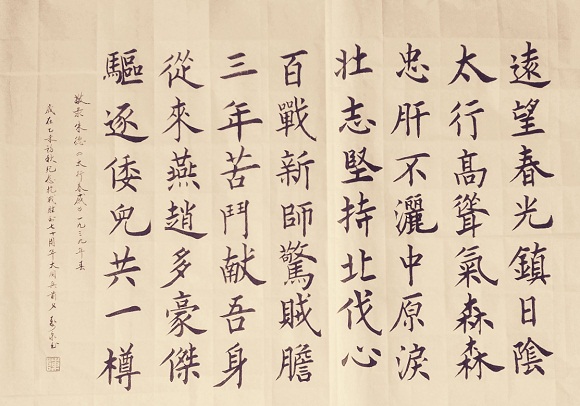 遠望春光鎮日陰
太行高聳氣森森
忠肝不灑中原淚
壮志堅持北伐心
百戰新師驚賊膽
三年苦鬥献吾身
從來燕趙多豪傑
驅逐倭兒共一樽
敬录朱德太行春感一九三九年春
歲在乙未初秋紀念抗戰勝利七十周年